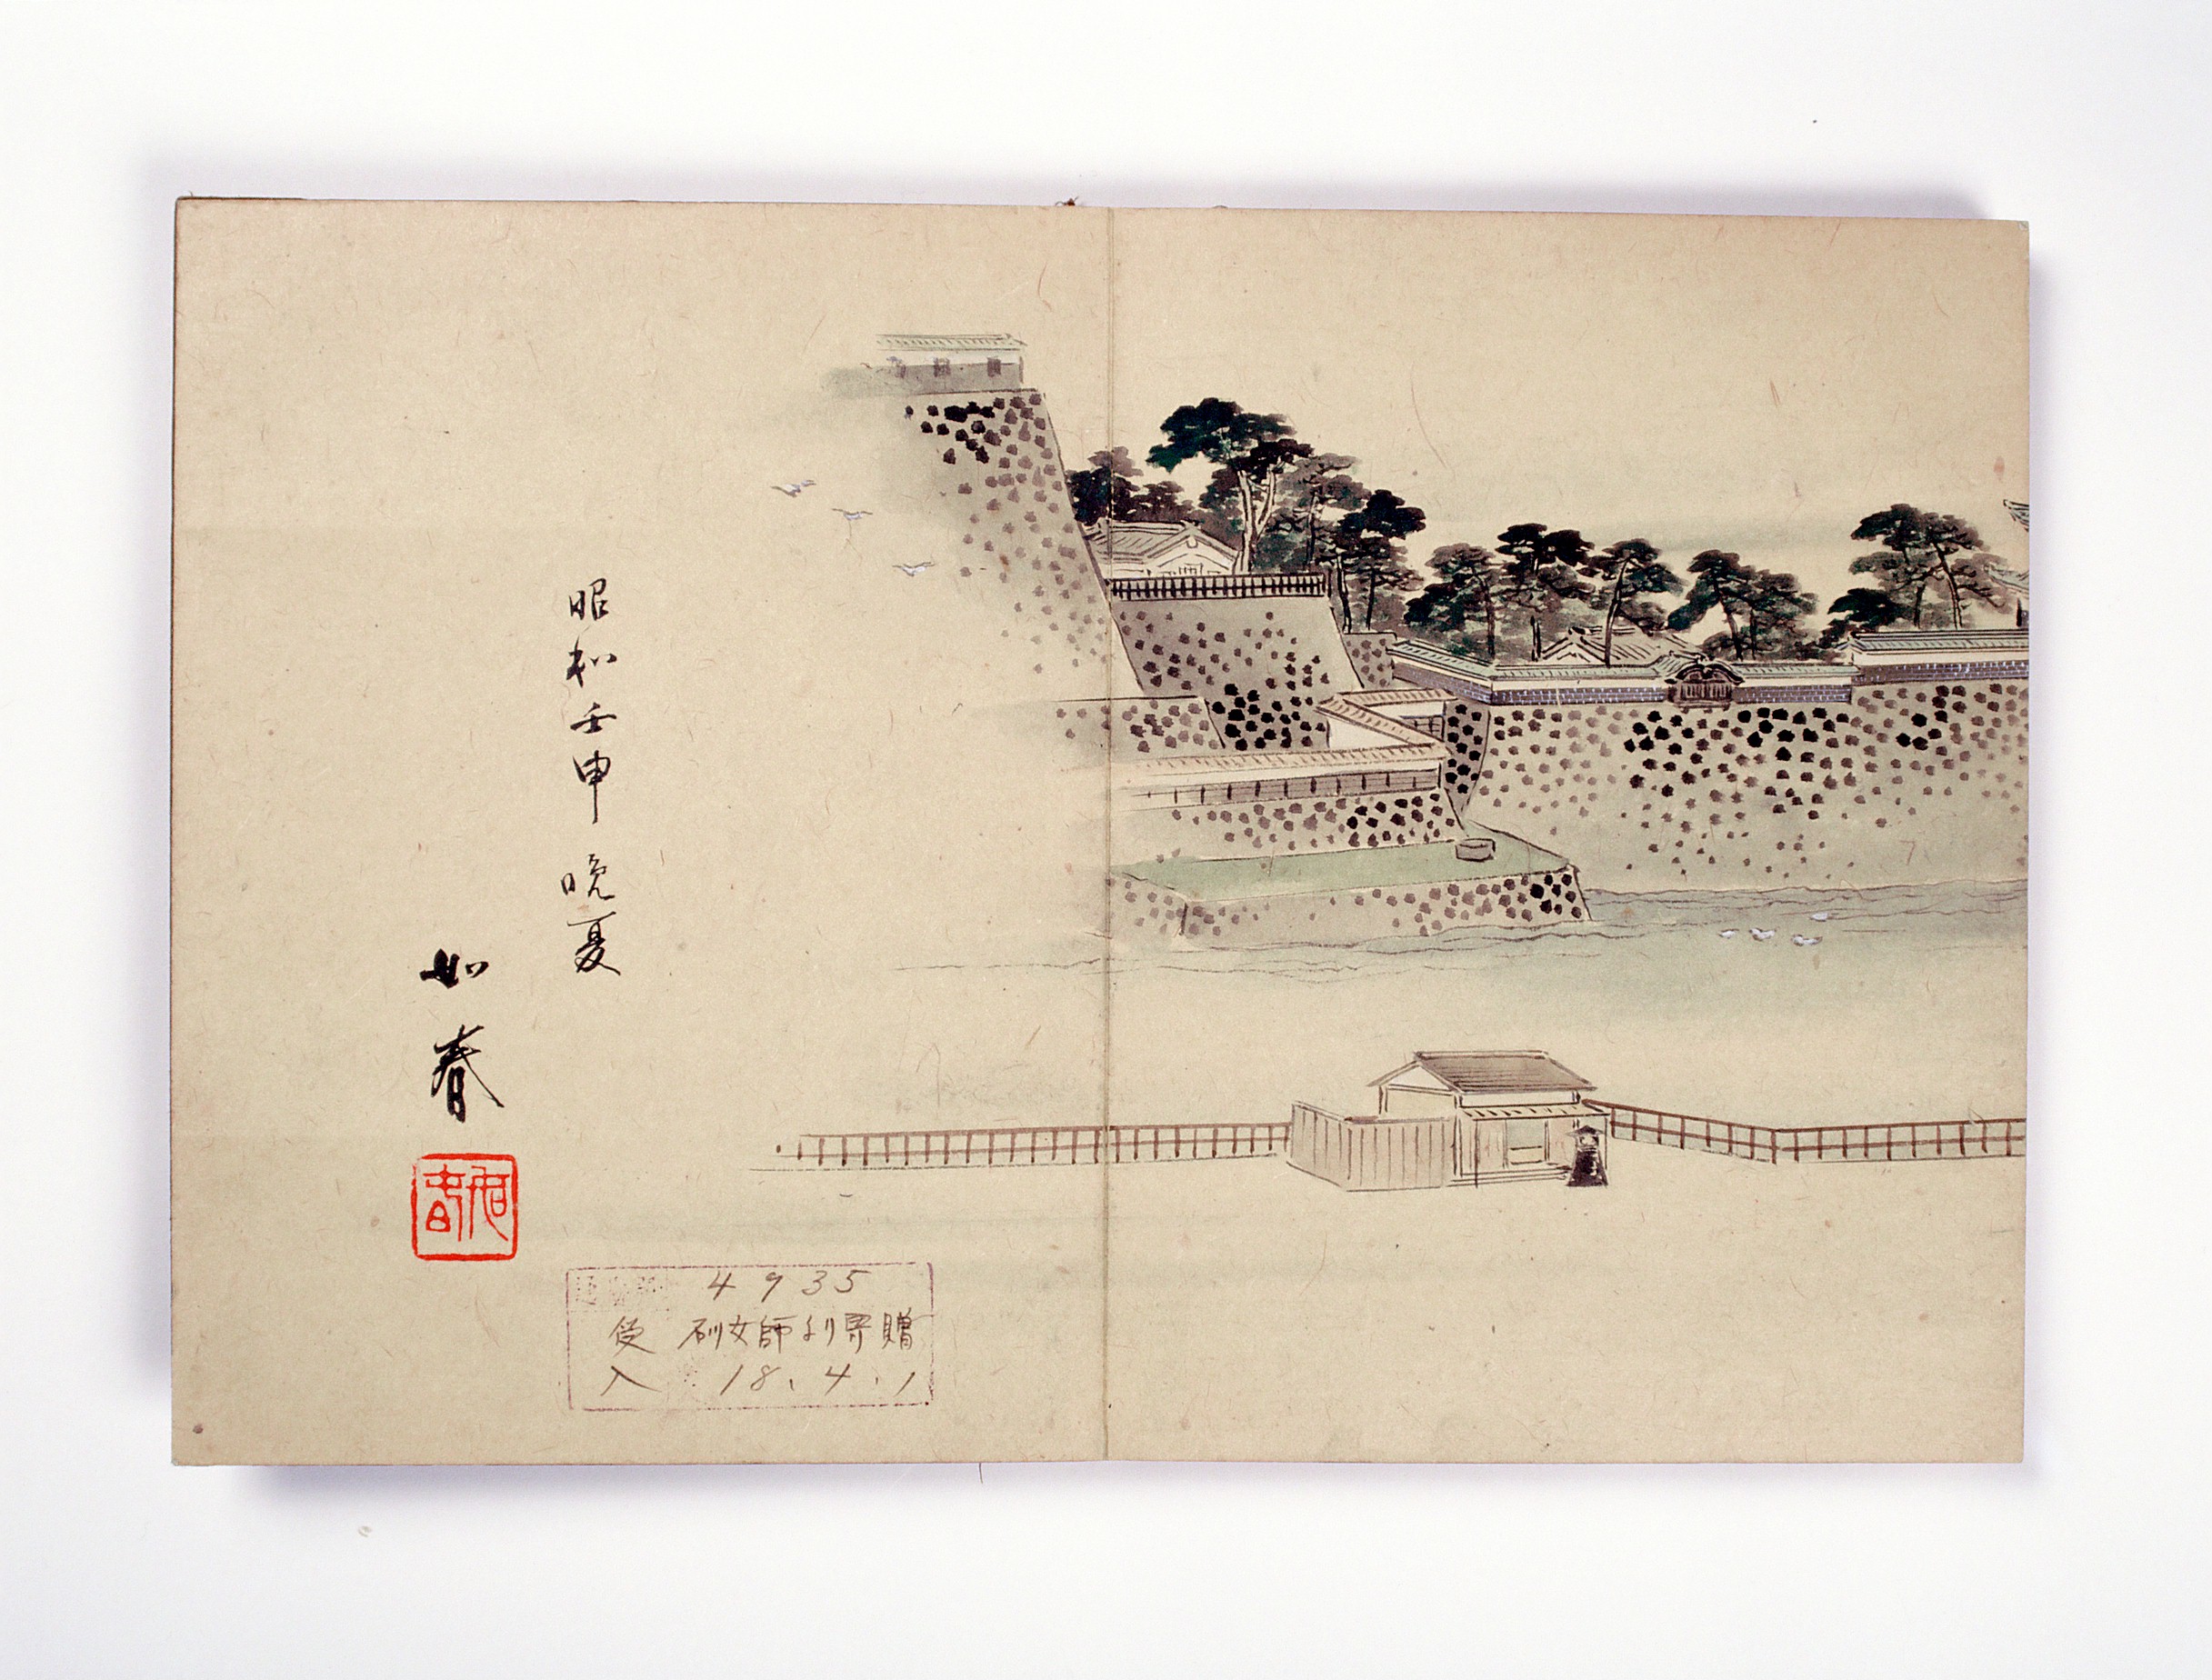 昭和壬申 晩夏
如春
4935
受 石川女師より寄贈
入 18.4.1